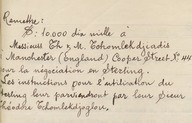 Remettre:
$: 10.000 dix mille à
Messieurs Th & M. Tchomlekdjiadis
Manchester (England) Cooper Street N° 44
pour la négociation en Sterling.
Les instructions pour l'utilisation du
Sterling leur parviendront par leur Sieur
Théodore Tchomlekdjoglou,